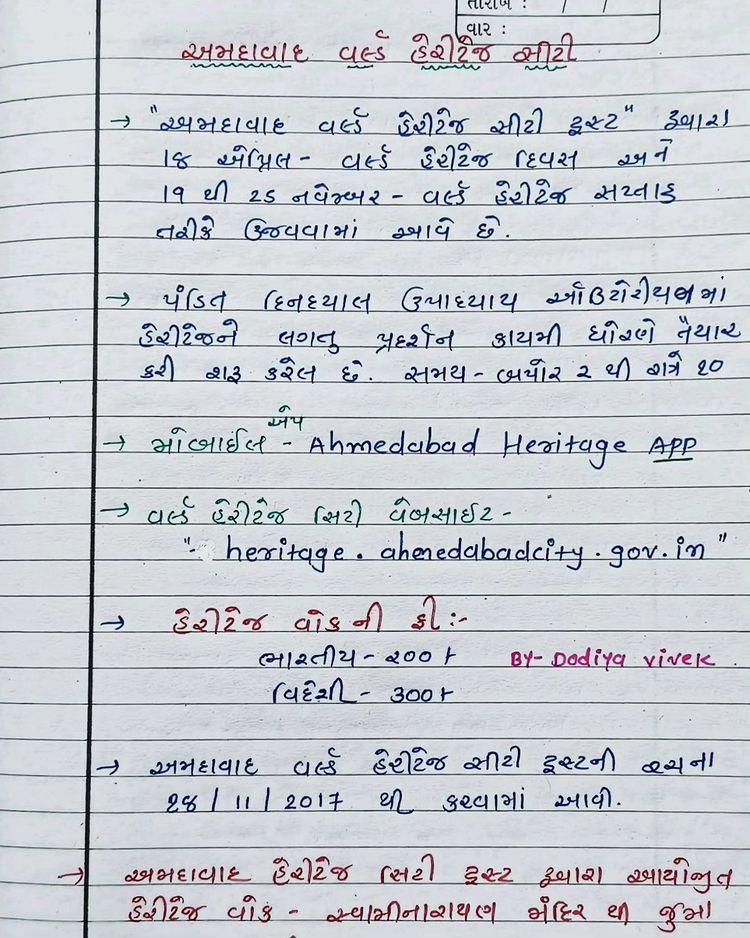 તારીખ : / /
વાર :
અમદાવાદ વર્લ્ડ હેરીટેજ સીટી
→ "અમદાવાદ વર્લ્ડ હેરીટેજ સીટી ટ્રસ્ટ" દ્વારા
૧૪ એપ્રિલ - વર્લ્ડ હેરીટેજ દિવસ અને
૧૯ થી ૨૫ નવેમ્બર - વર્લ્ડ હેરીટેજ સપ્તાહ
તરીકે ઉજવવામાં આવે છે.
→ પંડિત દિનદયાલ ઉપાધ્યાય ઓડિટોરીયમમાં
હેરીટેજને લગતુ પ્રદર્શન કાયમી ધોરણે તૈયાર
કરી શરૂ કરેલ છે. સમય - બપોર ૨ થી રાત્રે ૧૦
→ મોબાઈલ એપ - Ahmedabad Heritage APP
→ વર્લ્ડ હેરીટેજ સિટી વેબસાઈટ -
"heritage.ahmedabadcity.gov.in"
→ હેરીટેજ વોક ની ફી :-
ભારતીય - ૨૦૦ ₹ BY- Dodiya vivek
વિદેશી - ૩૦૦ ₹
→ અમદાવાદ વર્લ્ડ હેરીટેજ સીટી ટ્રસ્ટની રચના
૨૪ / 11 / 2017 થી કરવામાં આવી.
→ અમદાવાદ હેરીટેજ સિટી ટ્રસ્ટ દ્વારા આયોજીત
હેરીટેજ વોક - સ્વામીનારાયણ મંદિર થી જુમા